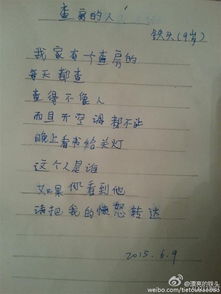 查房的人
铁头(9岁)
我家有个查房的
每天都查
查得不像人
而且开空调都不让
晚上看书给关灯
这个人是谁
如果你看到他
请把我的愤怒转送
2015.6.9
@漂亮的铁头